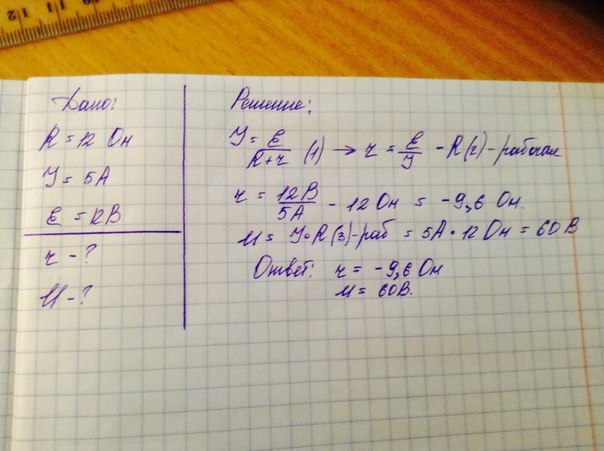 Дано:
R = 12 Ом
I = 5А
Ɛ = 12В
r - ?
U - ?
Решение:
I = Ɛ/(R+r) (1) → r = Ɛ/I - R (2) - рабочая
r = 12В/5А - 12 Ом = -9,6 Ом.
U = I • R (3) - раб = 5А • 12 Ом = 60 В
Ответ: r = -9,6 Ом
U = 60В.